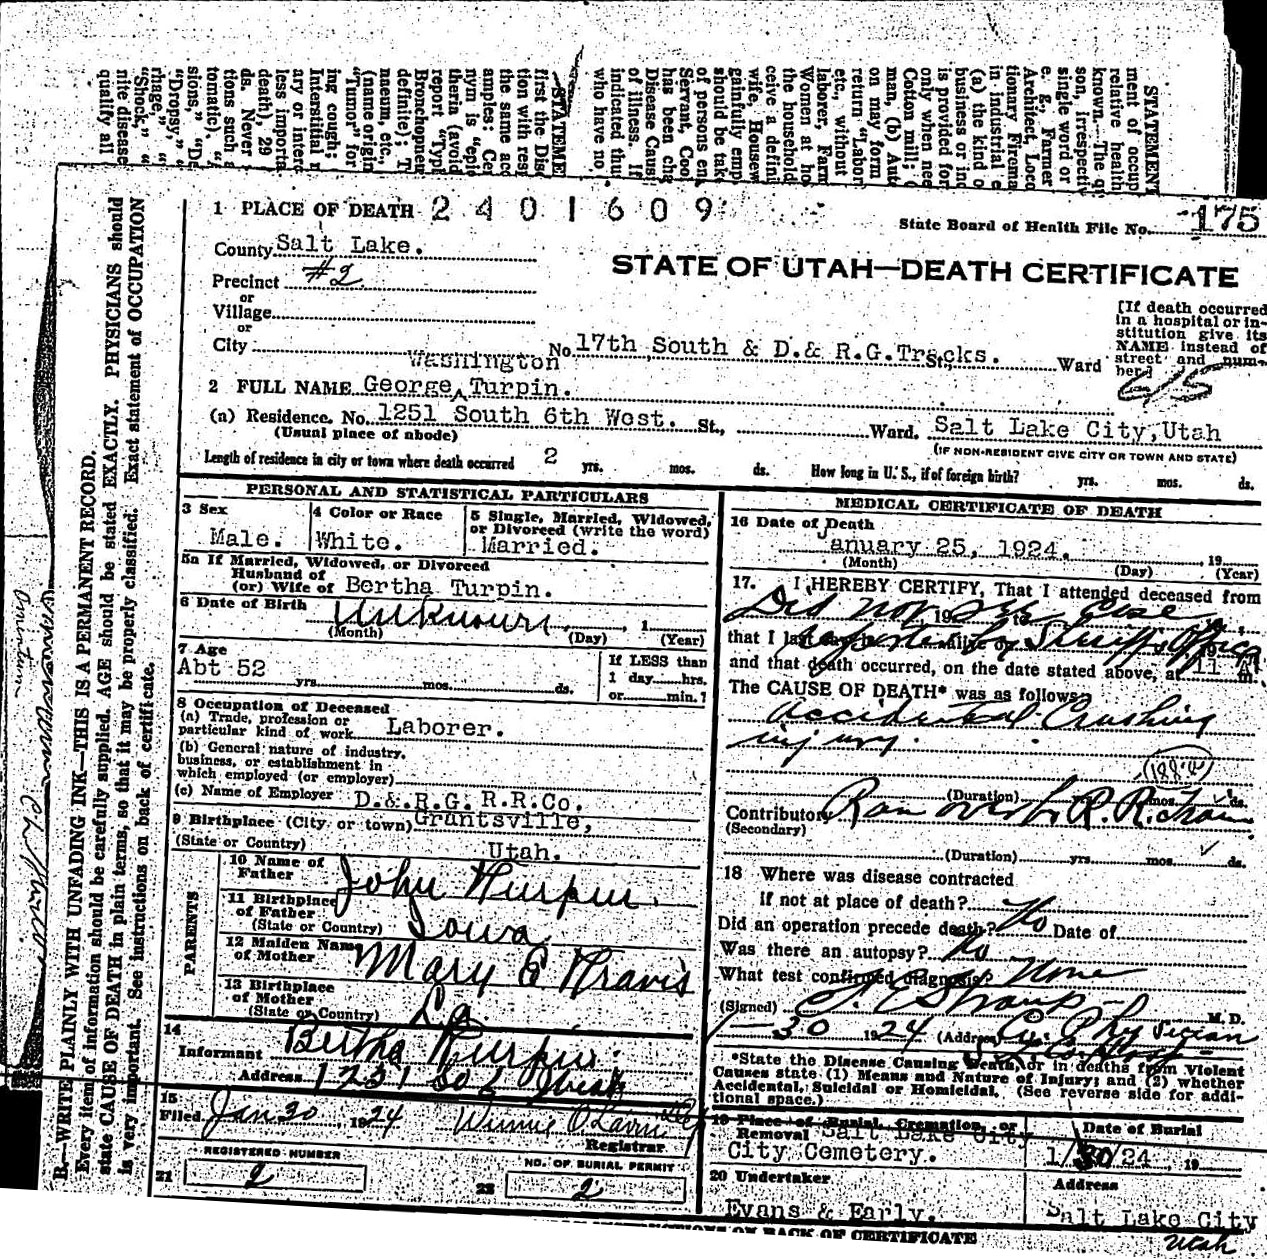 STATEMENT
ment of occup
relative health
known.—The qu
son, irrespectiv
single word or
e. g., Farmer
Architect, Loco
tionary Fireman
in industrial e
(a) the kind o
business or ind
is provided for
only when nee
Cotton mill; (
man, (b) Aut
on may form
return "Labor
etc., without
laborer, Farm
Women at ho
the household
ceive a defini
wife, Housew
gainfully emp
should be tak
of persons en
Servant, Cool
has been cha
Disease Caus
of illness. If
indicated thu
who have no
STATEME
first the Dise
tion with resp
the same acc
amples: Cer
nym is "epid
theria (avoid
report "Typh
Bronchopneu
definite); T
naeum, etc.,
(name origin
"Tumor" for
ing cough;
Interstitial n
ary or interc
less importa
death), 29
ds. Never
tions such a
tomatic). "A
sions," "De
"Dropsy," "
rhage," "
"Shock," "
nite disease
qualify all
B.—WRITE PLAINLY WITH UNFADING INK—THIS IS A PERMANENT RECORD.
Every item of information should be carefully supplied. AGE should be stated EXACTLY. PHYSICIANS should
state CAUSE OF DEATH in plain terms, so that it may be properly classified. Exact statement of OCCUPATION
is very important. See instructions on back of certificate.
1 PLACE OF DEATH 2401609
State Board of Health File No. 175
County Salt Lake.
STATE OF UTAH—DEATH CERTIFICATE
Precinct #2
or
Village
or
City
No. 17th South & D.& R.G.Tracks. St., Ward
[If death occurred
in a hospital or in-
stitution give its
NAME instead of
street and num-
ber.]
615
Washington
2 FULL NAME George ^ Turpin.
(a) Residence. No. 1251 South 6th West. St., Ward. Salt Lake City, Utah
(Usual place of abode) (IF NON-RESIDENT GIVE CITY OR TOWN AND STATE)
Length of residence in city or town where death occurred 2 yrs. mos. ds. How long in U. S., if of foreign birth? yrs. mos. ds.
PERSONAL AND STATISTICAL PARTICULARS
3 Sex
Male.
4 Color or Race
White.
5 Single, Married, Widowed,
or Divorced (write the word)
Married.
5a If Married, Widowed, or Divorced
Husband of
(or) Wife of Bertha Turpin.
6 Date of Birth Unknown, 1
(Month) (Day) (Year)
7 Age
Abt 52 yrs. mos. ds.
If LESS than
1 day hrs.
or min.?
8 Occupation of Deceased
(a) Trade, profession or
particular kind of work Laborer.
(b) General nature of industry,
business, or establishment in
which employed (or employer)
(c) Name of Employer D.&.R.G. R.R.Co.
9 Birthplace (City or town) Grantsville,
(State or Country) Utah.
PARENTS
10 Name of
Father John Turpin.
11 Birthplace
of Father
(State or Country) Iowa
12 Maiden Name
of Mother Mary E Travis
13 Birthplace
of Mother
(State or Country)
14
Informant Bertha Turpin.
Address 1251 So 6 West
15
Filed Jan 30 1924
Registrar
REGISTERED NUMBER
21 2
NO. OF BURIAL PERMIT
22 2
MEDICAL CERTIFICATE OF DEATH
16 Date of Death
January 25, 1924. 19
(Month) (Day) (Year)
17. I HEREBY CERTIFY, That I attended deceased from
Did not see case 19 to
that I last saw alive on Reported by Sheriffs Office 19
and that death occurred, on the date stated above, at 11 A m.
The CAUSE OF DEATH* was as follows:
Accidental Crushing
injury.
(Duration) yrs. mos. ds.
Contributory Ran over by R.R. train
(Secondary)
(Duration) yrs. mos. ds.
18 Where was disease contracted
If not at place of death?
Did an operation precede death? No Date of
Was there an autopsy? No
What test confirmed diagnosis? None
(Signed) M. D.
1-30 1924 (Address) Co. Physician
*State the Disease Causing Death, or in deaths from Violent
Causes state (1) Means and Nature of Injury; and (2) whether
Accidental, Suicidal or Homicidal. (See reverse side for addi-
tional space.)
19 Place of Burial, Cremation, or
Removal Salt Lake City
City Cemetery.
Date of Burial
1/30/24 19
20 Undertaker
Evans & Early.
Address
Salt Lake City
Utah
INSTRUCTIONS ON BACK OF CERTIFICATE